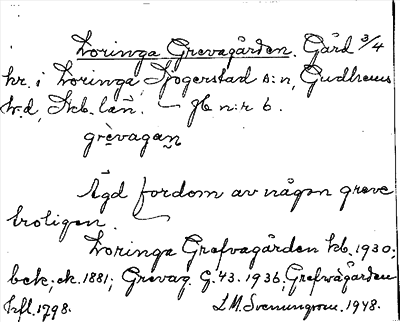 Loringa Grevagården. Gård 3/4
kr. i Loringa, Sjogerstad s:n, Gudhems
h:d, Skb. län. — Jb n:r 6.
grevagan
Ägd fordom av någon greve
troligen.
Loringa Grefvagården kb. 1930;
bek; ek. 1881; Grevag. G. 43. 1936; Grefwagården
hfl. 1798. L. M. Svenungsson. 1948.